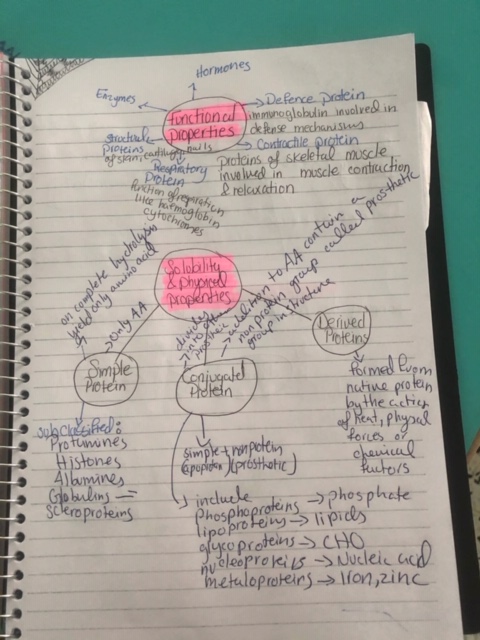 Hormones
Enzymes
functional
properties
Defence protein
immunoglobulin involved in
defense mechanisms
Contractile protein
Proteins of skeletal muscle
involved in muscle contraction
& relaxation
structural
proteins
of skin, cartilage, nails
Respiratory
Protein
function of respiration
like haemoglobin
cytochromes
Solobility
& physical
properties
on complete hydrolysis
yield only amino acid
only AA
Simple
Protein
Subclassified:
Protumines
Histones
Albumines
Globulins
Scleroproteins
addition to AA contain a
non protein group called prosthetic
group in structure
Conjugated
Protein
simple + nonprotein
(apoprotein) (prosthetic)
include
Phosphoproteins → phosphate
lipoproteins → lipids
glycoproteins → CHO
nucleoproteins → Nucleic acid
metaloproteins → Iron, zinc
Derived
Proteins
formed from
native protein
by the action
of heat, physical
forces or
chemical
factors